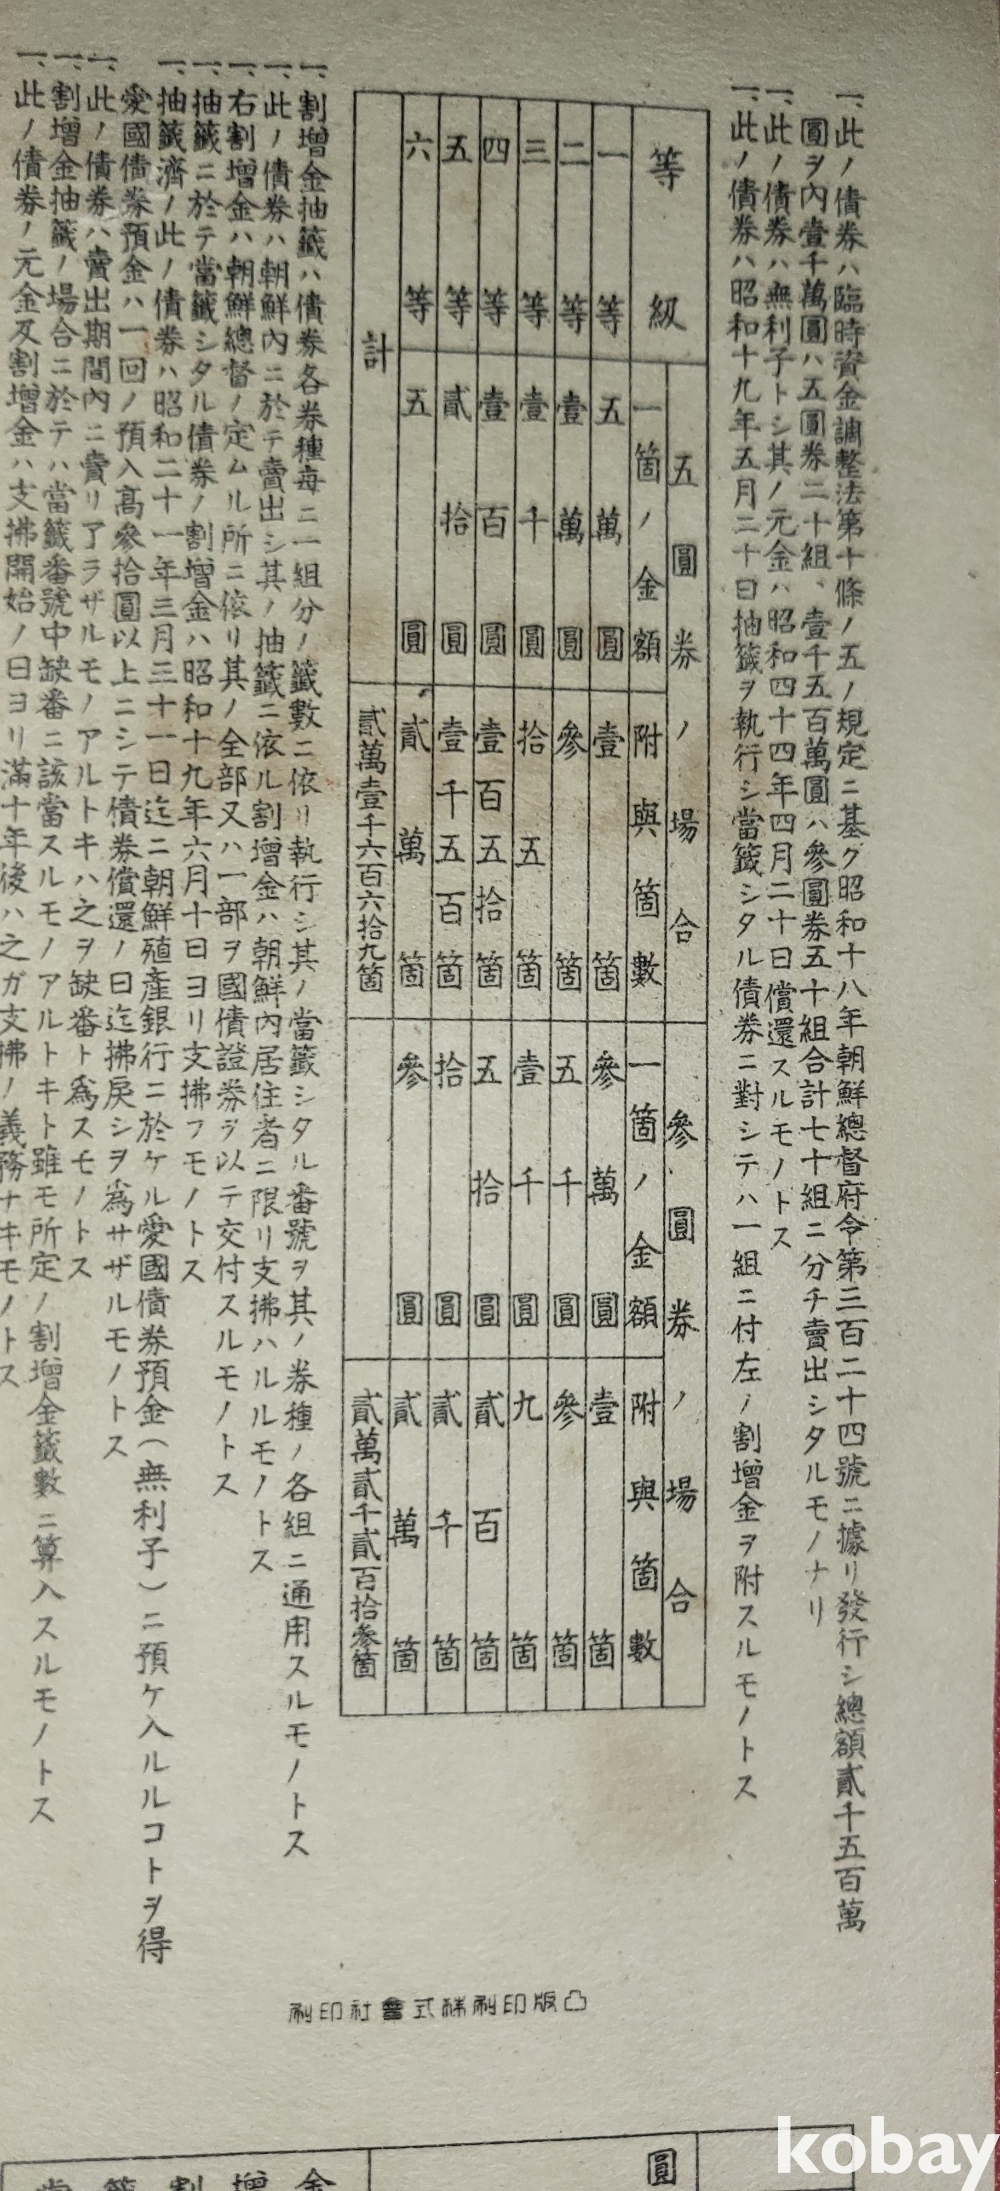 一、此ノ債券ハ臨時資金調整法第十條ノ五ノ規定ニ基ク昭和十八年朝鮮總督府令第三百二十四號ニ據リ發行シ總額貳千五百萬
圓ヲ內壹千萬圓ハ五圓券二十組、壹千五百萬圓ハ參圓券五十組合計七十組ニ分チ賣出シタルモノナリ
一、此ノ債券ハ無利子トシ其ノ元金ハ昭和四十四年四月二十日償還スルモノトス
一、此ノ債券ハ昭和十九年五月二十日抽籤ヲ執行シ當籤シタル債券ニ對シテハ一組ニ付左ノ割增金ヲ附スルモノトス
等級
五圓券ノ場合
參圓券ノ場合
一箇ノ金額
附與箇數
一箇ノ金額
附與箇數
一等 五萬圓 壹箇 參萬圓 壹箇
二等 壹萬圓 參箇 五千圓 參箇
三等 壹千圓 拾五箇 壹千圓 九箇
四等 壹百圓 壹百五拾箇 五拾圓 貳百箇
五等 貳拾圓 壹千五百箇 拾圓 貳千箇
六等 五圓 貳萬箇 參圓 貳萬箇
計 貳萬壹千六百六拾九箇 貳萬貳千貳百拾參箇
一、割增金抽籤ハ債券各券種每ニ一組分ノ籤數ニ依リ執行シ其ノ當籤シタル番號ヲ其ノ券種ノ各組ニ通用スルモノトス
一、此ノ債券ハ朝鮮內ニ於テ賣出シ其ノ抽籤ニ依ル割增金ハ朝鮮內居住者ニ限リ支拂ハルルモノトス
一、右割增金ハ朝鮮總督ノ定ムル所ニ依リ其ノ全部又ハ一部ヲ國債證券ヲ以テ交付スルモノトス
一、抽籤ニ於テ當籤シタル債券ノ割增金ハ昭和十九年六月十日ヨリ支拂フモノトス
一、抽籤濟ノ此ノ債券ハ昭和二十一年三月三十一日迄ニ朝鮮殖產銀行ニ於ケル愛國債券預金(無利子)ニ預ケ入ルルコトヲ得
愛國債券預金ハ一回ノ預入高參拾圓以上ニシテ債券償還ノ日迄拂戾シヲ爲サザルモノトス
一、此ノ債券ハ賣出期間內ニ賣リ了ラザルモノアルトキハ之ヲ缺番ト爲スモノトス
一、割增金抽籤ノ場合ニ於テハ當籤番號中缺番ニ該當スルモノアルトキト雖モ所定ノ割增金籤數ニ算入スルモノトス
一、此ノ債券ノ元金及割增金ハ支拂開始ノ日ヨリ滿十年後ハ之ガ支拂ノ義務ナキモノトス
刷印社會式株刷印版凸
圓
籤割增金
kobay